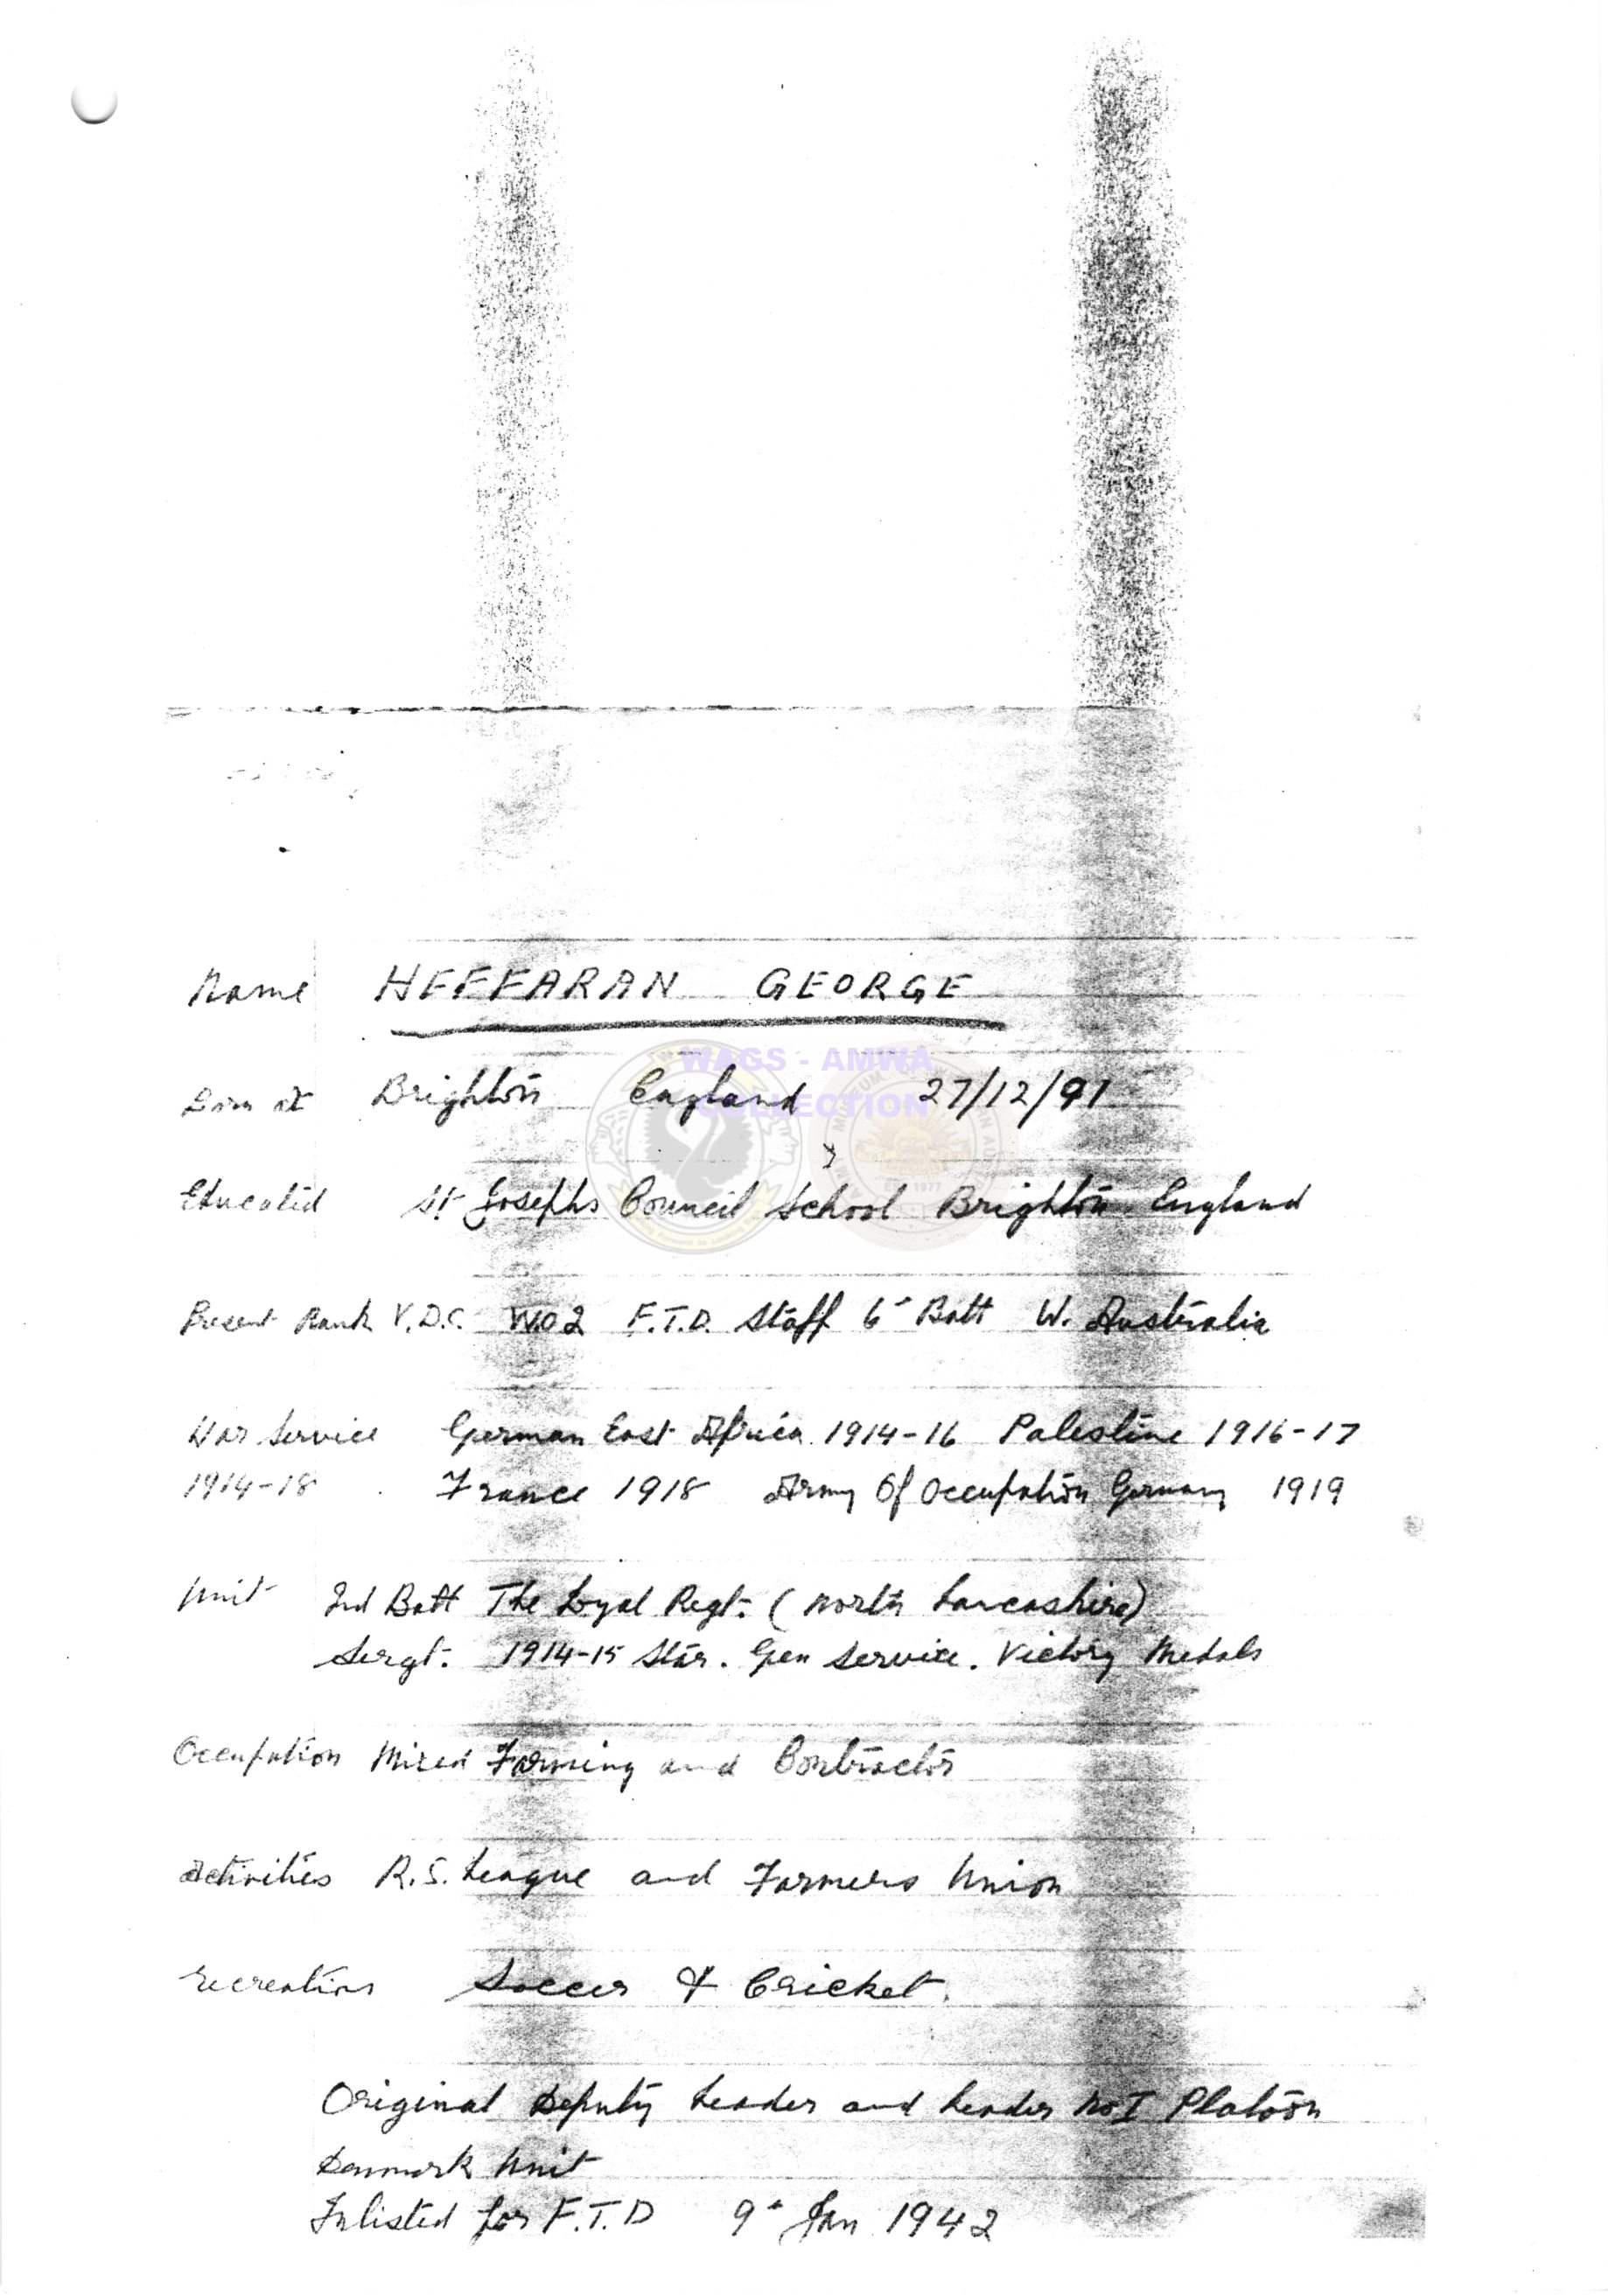 Name HEFFARAN GEORGE
WAGS - AMWA
COLLECTION
Born at Brighton England 27/12/91
Educated St Josephs Council School Brighton England
Present Rank V.D.C. W.O2 F.T.D. Staff 6th Batt W. Australia
War Service German East Africa 1914-16 Palestine 1916-17
1914-18 France 1918 Army Of Occupation Germany 1919
Unit 2nd Batt The Loyal Regt. (North Lancashire)
Sergt. 1914-15 Star. Gen Service. Victory Medals
Occupation Mixed Farming and Contractor
Activities R.S. League and Farmers Union
recreations Soccer & Cricket.
Original Deputy Leader and Leader No I Platoon
Denmark Unit
Inlisted for F.T.D 9th Jan 1942